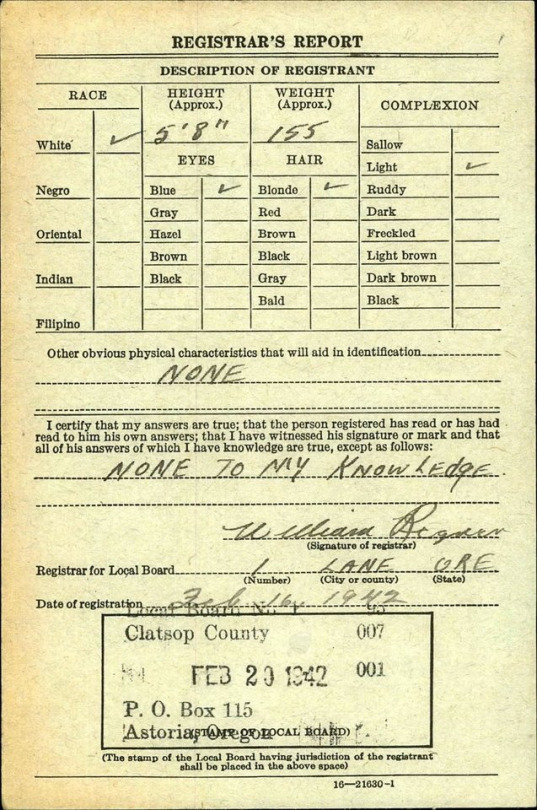 REGISTRAR'S REPORT
DESCRIPTION OF REGISTRANT
RACE
HEIGHT (Approx.)
WEIGHT (Approx.)
COMPLEXION
White ✓
5'8"
155
Sallow
EYES
HAIR
Light ✓
Negro
Blue ✓
Blonde ✓
Ruddy
Gray
Red
Dark
Oriental
Hazel
Brown
Freckled
Brown
Black
Light brown
Indian
Black
Gray
Dark brown
Bald
Black
Filipino
Other obvious physical characteristics that will aid in identification
NONE
I certify that my answers are true; that the person registered has read or has had
read to him his own answers; that I have witnessed his signature or mark and that
all of his answers of which I have knowledge are true, except as follows:
NONE TO MY KNOWLEDGE
William
(Signature of registrar)
Registrar for Local Board 1 LANE ORE
(Number) (City or county) (State)
Date of registration Feb 16, 1942
Local Board No. 1
Clatsop County 007
FEB 20 1942 001
P. O. Box 115
Astoria, Oregon
(STAMP OF LOCAL BOARD)
(The stamp of the Local Board having jurisdiction of the registrant
shall be placed in the above space)
16—21630-1